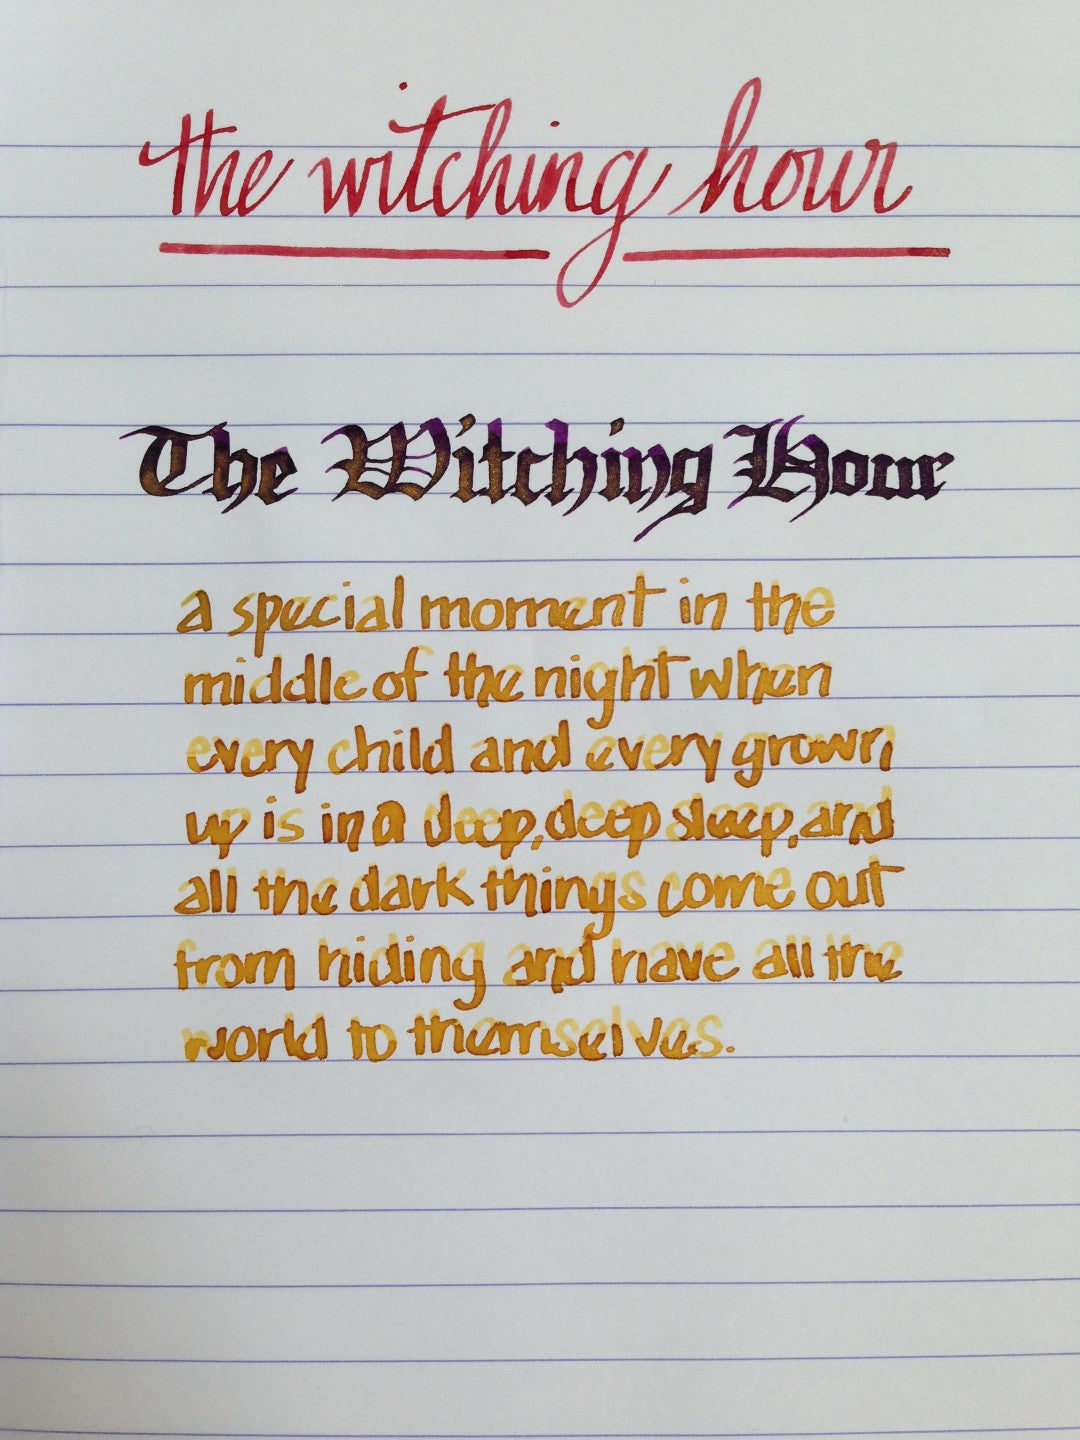 the witching hour
The Witching Hour
a special moment in the
middle of the night when
every child and every grown
up is in a deep, deep sleep, and
all the dark things come out
from hiding and have all the
world to themselves.